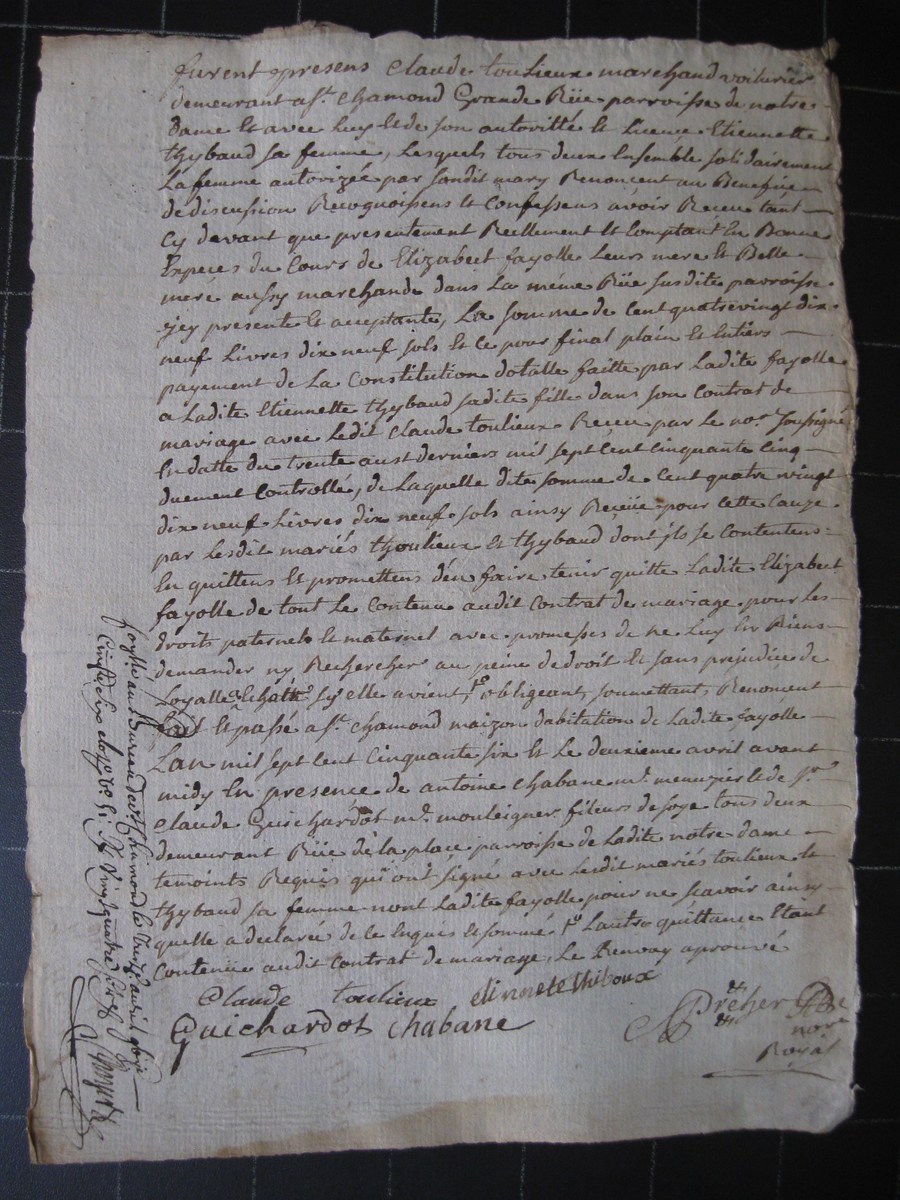 furent presens Claude toulieux marchand voiturier
demeurant a St. Chamond Grande Rüe parroisse de notre
dame et avec luy et de son autoritté et licence Etiennette
thybaud sa femme, lesquels tous deux Ensemble solidairement
la femme autorizée par sondit mary Renoncent au Benefice
de discusion Recognoissens et Confessens avoir Receu tant
cy devant que presentement Reellement et Comptant En Bonne
Especes du Cours de Elizabeet fayolle leurs mere et Belle
mere aussy marchande dans la méme Rüe susdite parroisse
jcy presente et acceptante, La somme de Cent quatrevingt dix
neuf Livres dix neuf sols et ce pour final plain et Entiers
payement de La Constitution dotalle faitte par Ladite fayolle
a Ladite Etiennette thybaud sadite fille dans son Contrat de
mariage avec ledit Claude toulieux Receu par le nore. soussigné
En datte du trente aust derniers mil sept cent cinquante cinq
duement Controllé, de Laquelle dite somme de Cent quatre vingt
dix neuf Livres dix neuf sols ainsy Reçüe pour cette Cauze
par Lesdit mariés thoulieux et thybaud dont jls se Contentens
En quittens et promettens d'en faire tenir quitte Ladite Elizabeet
fayolle de tout Le Contenu audit Contrat de mariage pour les
droits paternels et maternel avec promesses de ne Luy En Riens
demander ny Rechercher au peine de droit et sans prejudice de
Loyalle sy elle avient, obligeant, soumettant, Renonçent
fait et passé a St. Chamond maizon d'abitation de Ladite fayolle
Lan mil sept Cent Cinquante six et le deuxieme avril avant
midy En presence de antoine Chabane md. menuzier et de sr.
Claude Guichardot md. mouleigner fileurs de soye tous deux
demeurant Rüe de la place parroisse de Ladite notre dame
temoints Requis qui ont signé avec Lesdit mariés toulieux et
thybaud sa femme non Ladite fayolle pour ne scavoir ainsy
quelle a declarée de ce Enquis et sommé, Lautre quittance Etant
Contenüe audit Contrat de mariage, Le Renvoy aprouvé
Claude toulieux
Guichardot Chabane
nore
Royal
au Bureau de St chamond le treize avril
vingt quatre sols